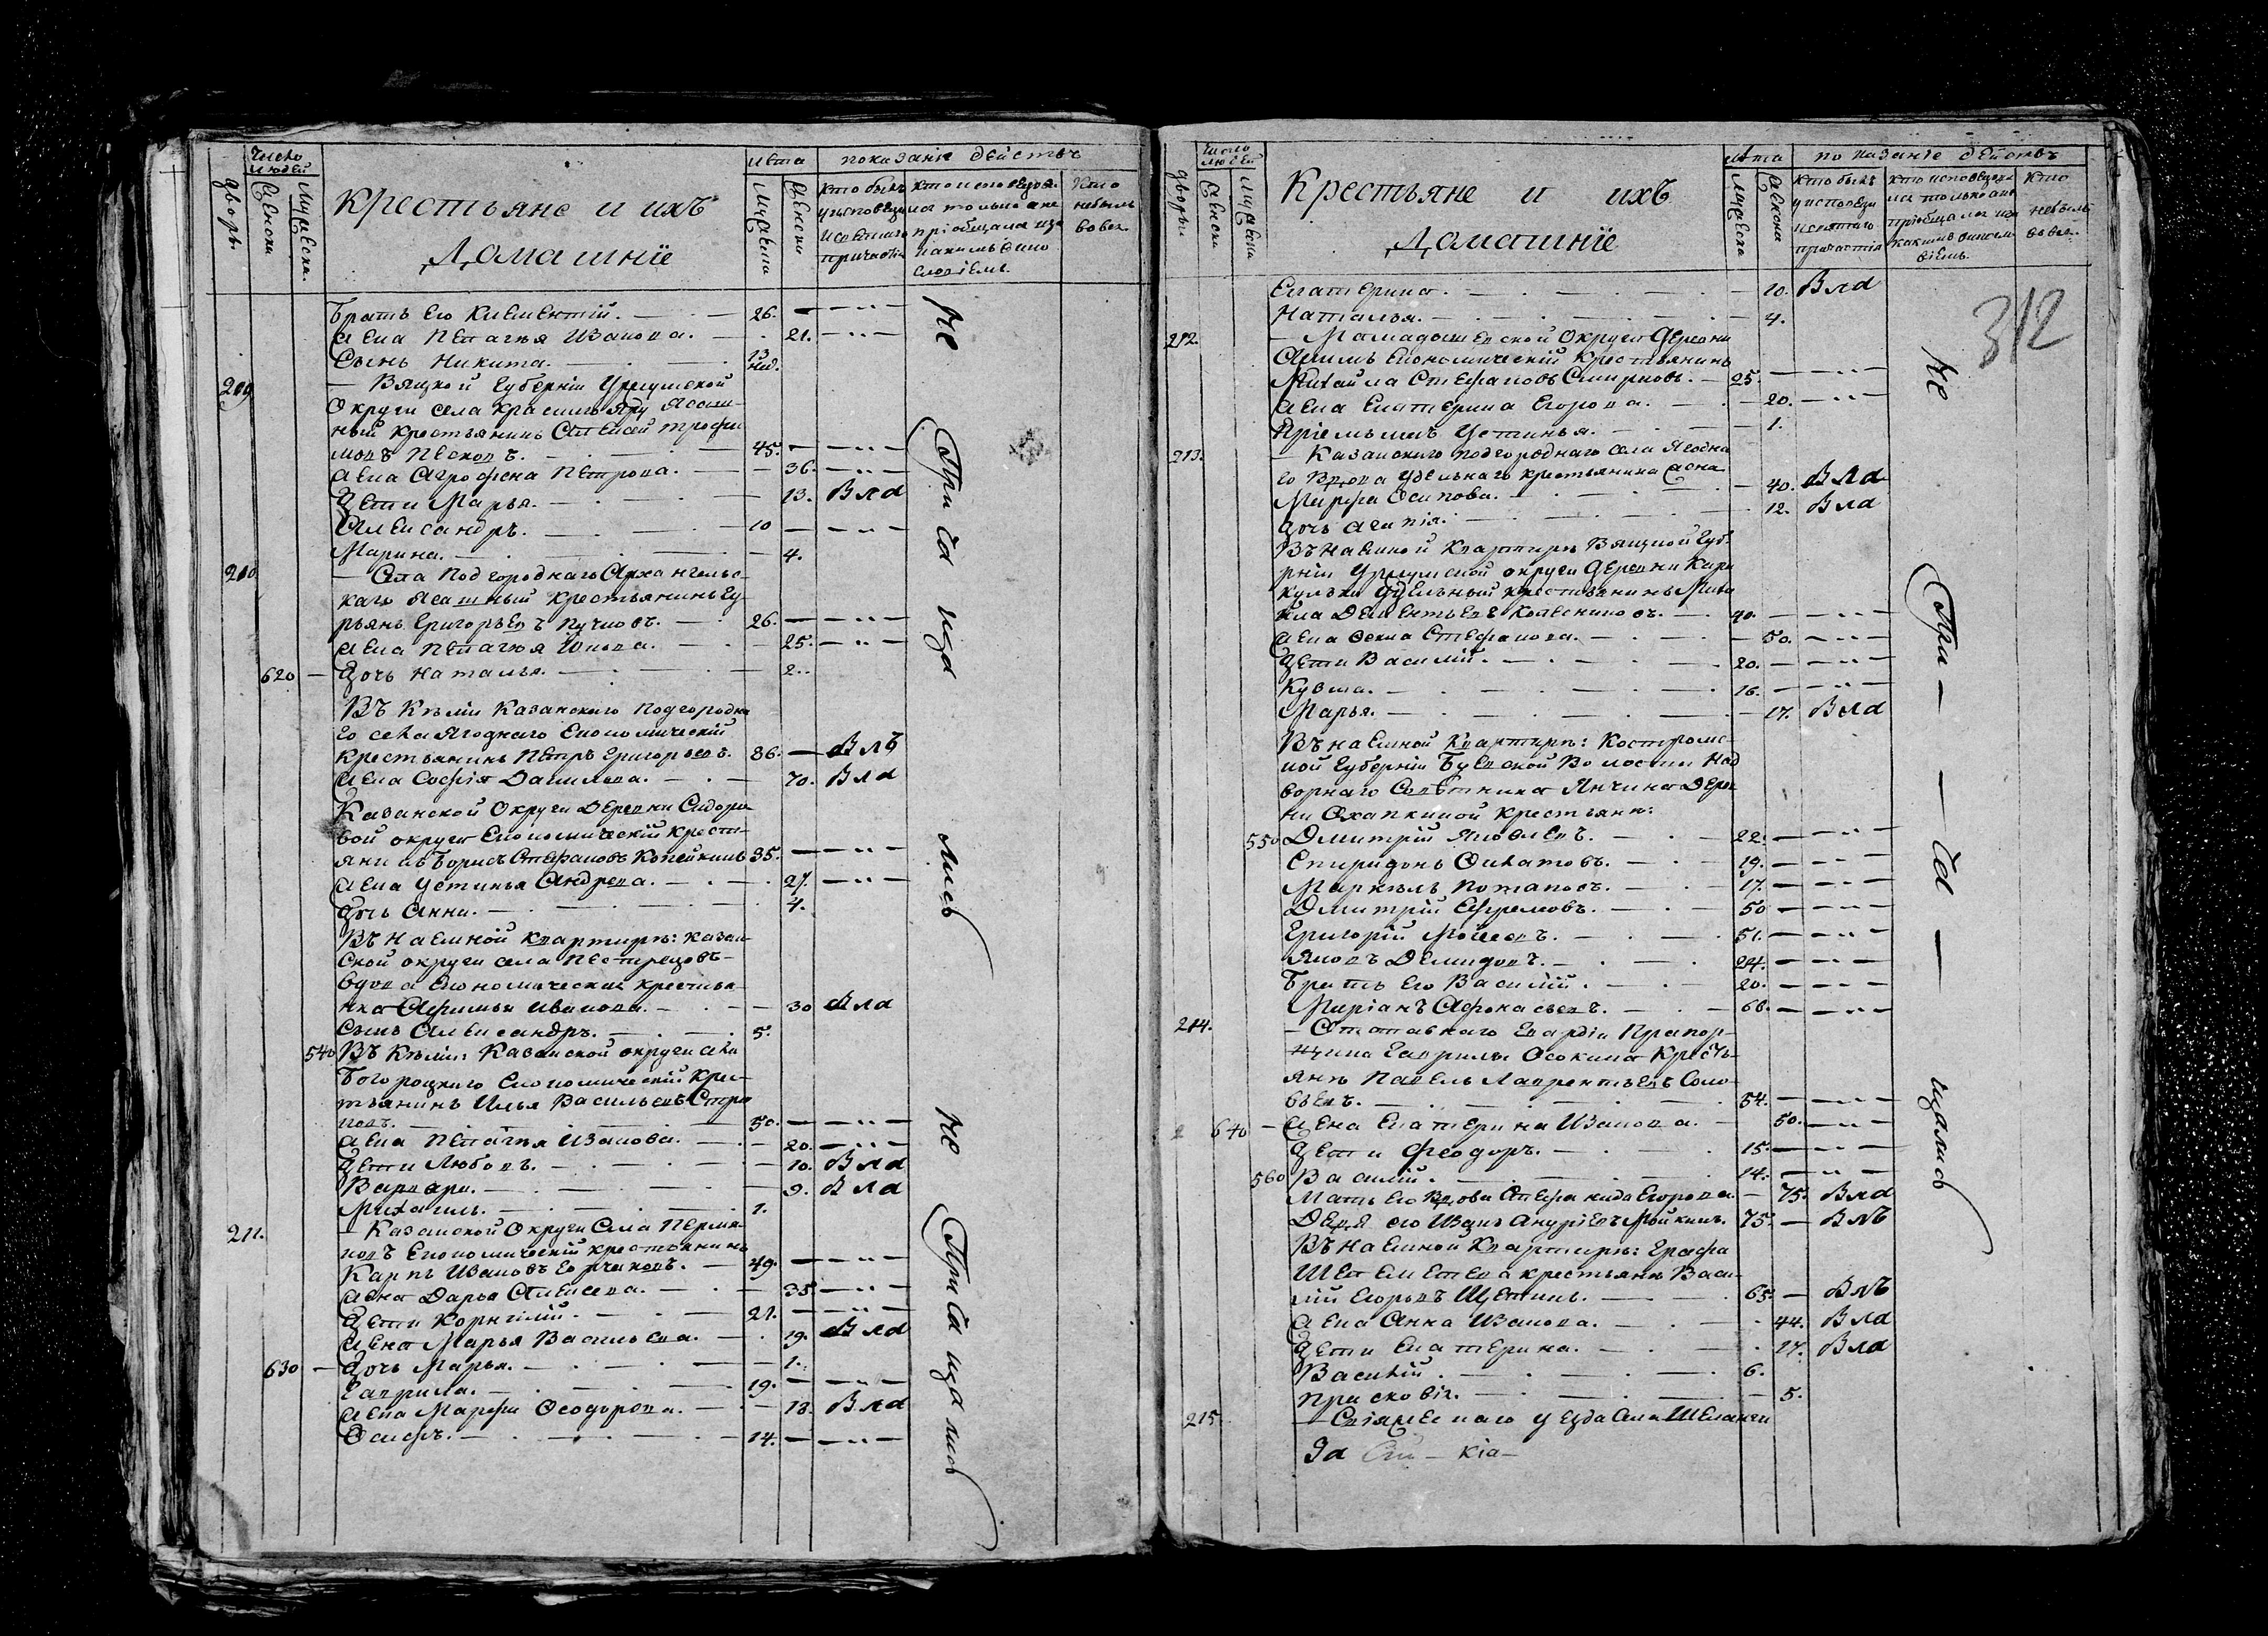 Число людей
Лета
показаніе действъ
дворъ.
Женска
Мужеска.
Крестьяне и ихъ
Домашнїе
Мужеска
Женско
Кто былъ у исповеди и святаго причастїя
Кто
не былъ
вовсе.
Братъ его Климентїй. 26.
жена Пелагея Иванова. 21.
Сынъ Никита. 13 нед.
209 — Вяцкой Губернїи Уржумской
Округи села Краснаго Яру Ясаш-
ный крестьянинъ Алексей Трофи
мовъ Песковъ. 45.
жена Агрофена Петрова. 36.
Дети Марья. 13. Была
Александръ. 10
Марина. 4.
210 — Села Подгороднаго Архангельс-
каго Ясашный Крестьянинъ Гу-
рьянъ Григорьевъ Пучковъ. 26.
жена Пелагея Юнова. 25.
620 — Дочь Наталья. 2.
Въ Кельи Казанскаго Подгородна
го села Ягоднаго Економическїй
крестьянинъ Петръ Григорьевъ. 86. Былъ
жена Софїя Данилова. 70. Была
Казанской Округи Деревни Сидоро
вой округи Економическїй Крести-
янинъ Борисъ Стефановъ Копейкинъ 35.
жена Устинья Андрева. 27.
Дочь Анна. 4.
Въ Наемной Квартире: Казан-
ской округи села Пестрецовъ
Вдова Економическая Крестья-
нка Афимья Иванова. 30 Была
Сынъ Александръ. 5.
540 Въ Кельи: Казанской округи села
Богороцкаго Економическїй Кре-
стьянинъ Илья Васильевъ
50.
жена Пелагея Иванова. 20.
Дети Любовь. 10. Была
Варвара. 9. Была
Михаилъ. 1.
211. — Казанской Округи Села
Економическїй крестьянинъ
Карпъ Ивановъ 49.
жена Дарья Алексева. 35
Дети Корнилїй. 21.
жена Марья Васильева. 19. Была
630 — Дочь Марья. 1.
Гаврила. 19.
жена Марфа Феодорова. 18. Была
Осифъ. 14.
Не При ча ща лись
Не При ча ща лись
Число людей
Лета
показанїе действъ
дворы.
Женска
Мужеска
Крестьяне и ихъ
Домашнїе
Мужеска
Женска
Кто былъ у исповеди и святаго причастїя
Кто
не былъ
вовсе.
312
Екатерина. 10. Была
Наталья. 4.
212. — Мамадышевской Округи Деревни
Економическїй Крестьянинъ
Михайла Стефановъ Смирновъ. 25.
жена Екатерина Егорова. 20.
Прїемышъ Устинья. 1.
213. — Казанскаго подгороднаго села Ягодна
го Вдова Удельнаго крестьянина жена
Марфа Осипова. 40. Была
Дочь Агапїя. 12. Была
Въ Наемной Квартире Вяцкой Губе
рнїи Уржумской округи Деревни
Удельный крестьянинъ Миха
йла Дементьевъ Колесниковъ. 40.
жена Фекла Стефанова. 50.
Дети Василїй. 20.
Кузма. 16.
Марья. 17. Была
Въ наемной Квартире: Костромс-
кой Губернїи Буевской Волости Над
ворнаго Советника Янчина Дерев
ни Охапкиной Крестьяне:
550 Дмитрїй Яковлевъ. 22.
Спиридонъ 19.
Маркелъ Потаповъ. 17.
Дмитрїй Ефремовъ. 50
Григорїй Мойсеевъ. 51.
Яковъ Демидовъ. 24.
Братъ его Василїй. 20.
Марїанъ Афонасьевъ. 68.
214. — Отставнаго Гвардїи Прапор-
щика Гаврилы Осокина Кресть-
янъ Павелъ Лаврентьевъ Соло-
вьевъ. 54.
640 — жена Екатерина Иванова. 50.
Дети Феодоръ. 15.
560 Василїй. 14.
Мать его Вдова Степанида Егорова. 75. Была
Дедя его Иванъ Андрїевъ 75. Былъ
Въ Наемной Квартире: Графа
Шереметева крестьянъ Васи-
лїй Егоровъ Щетинъ. 65. Былъ
жена Анна Иванова. 44. Была
Дети Екатерина. 17. Была
Василїй. 6.
Присковїя. 5.
215. — Свїяжскаго уезда села Шеланги
Не При — ча — щались